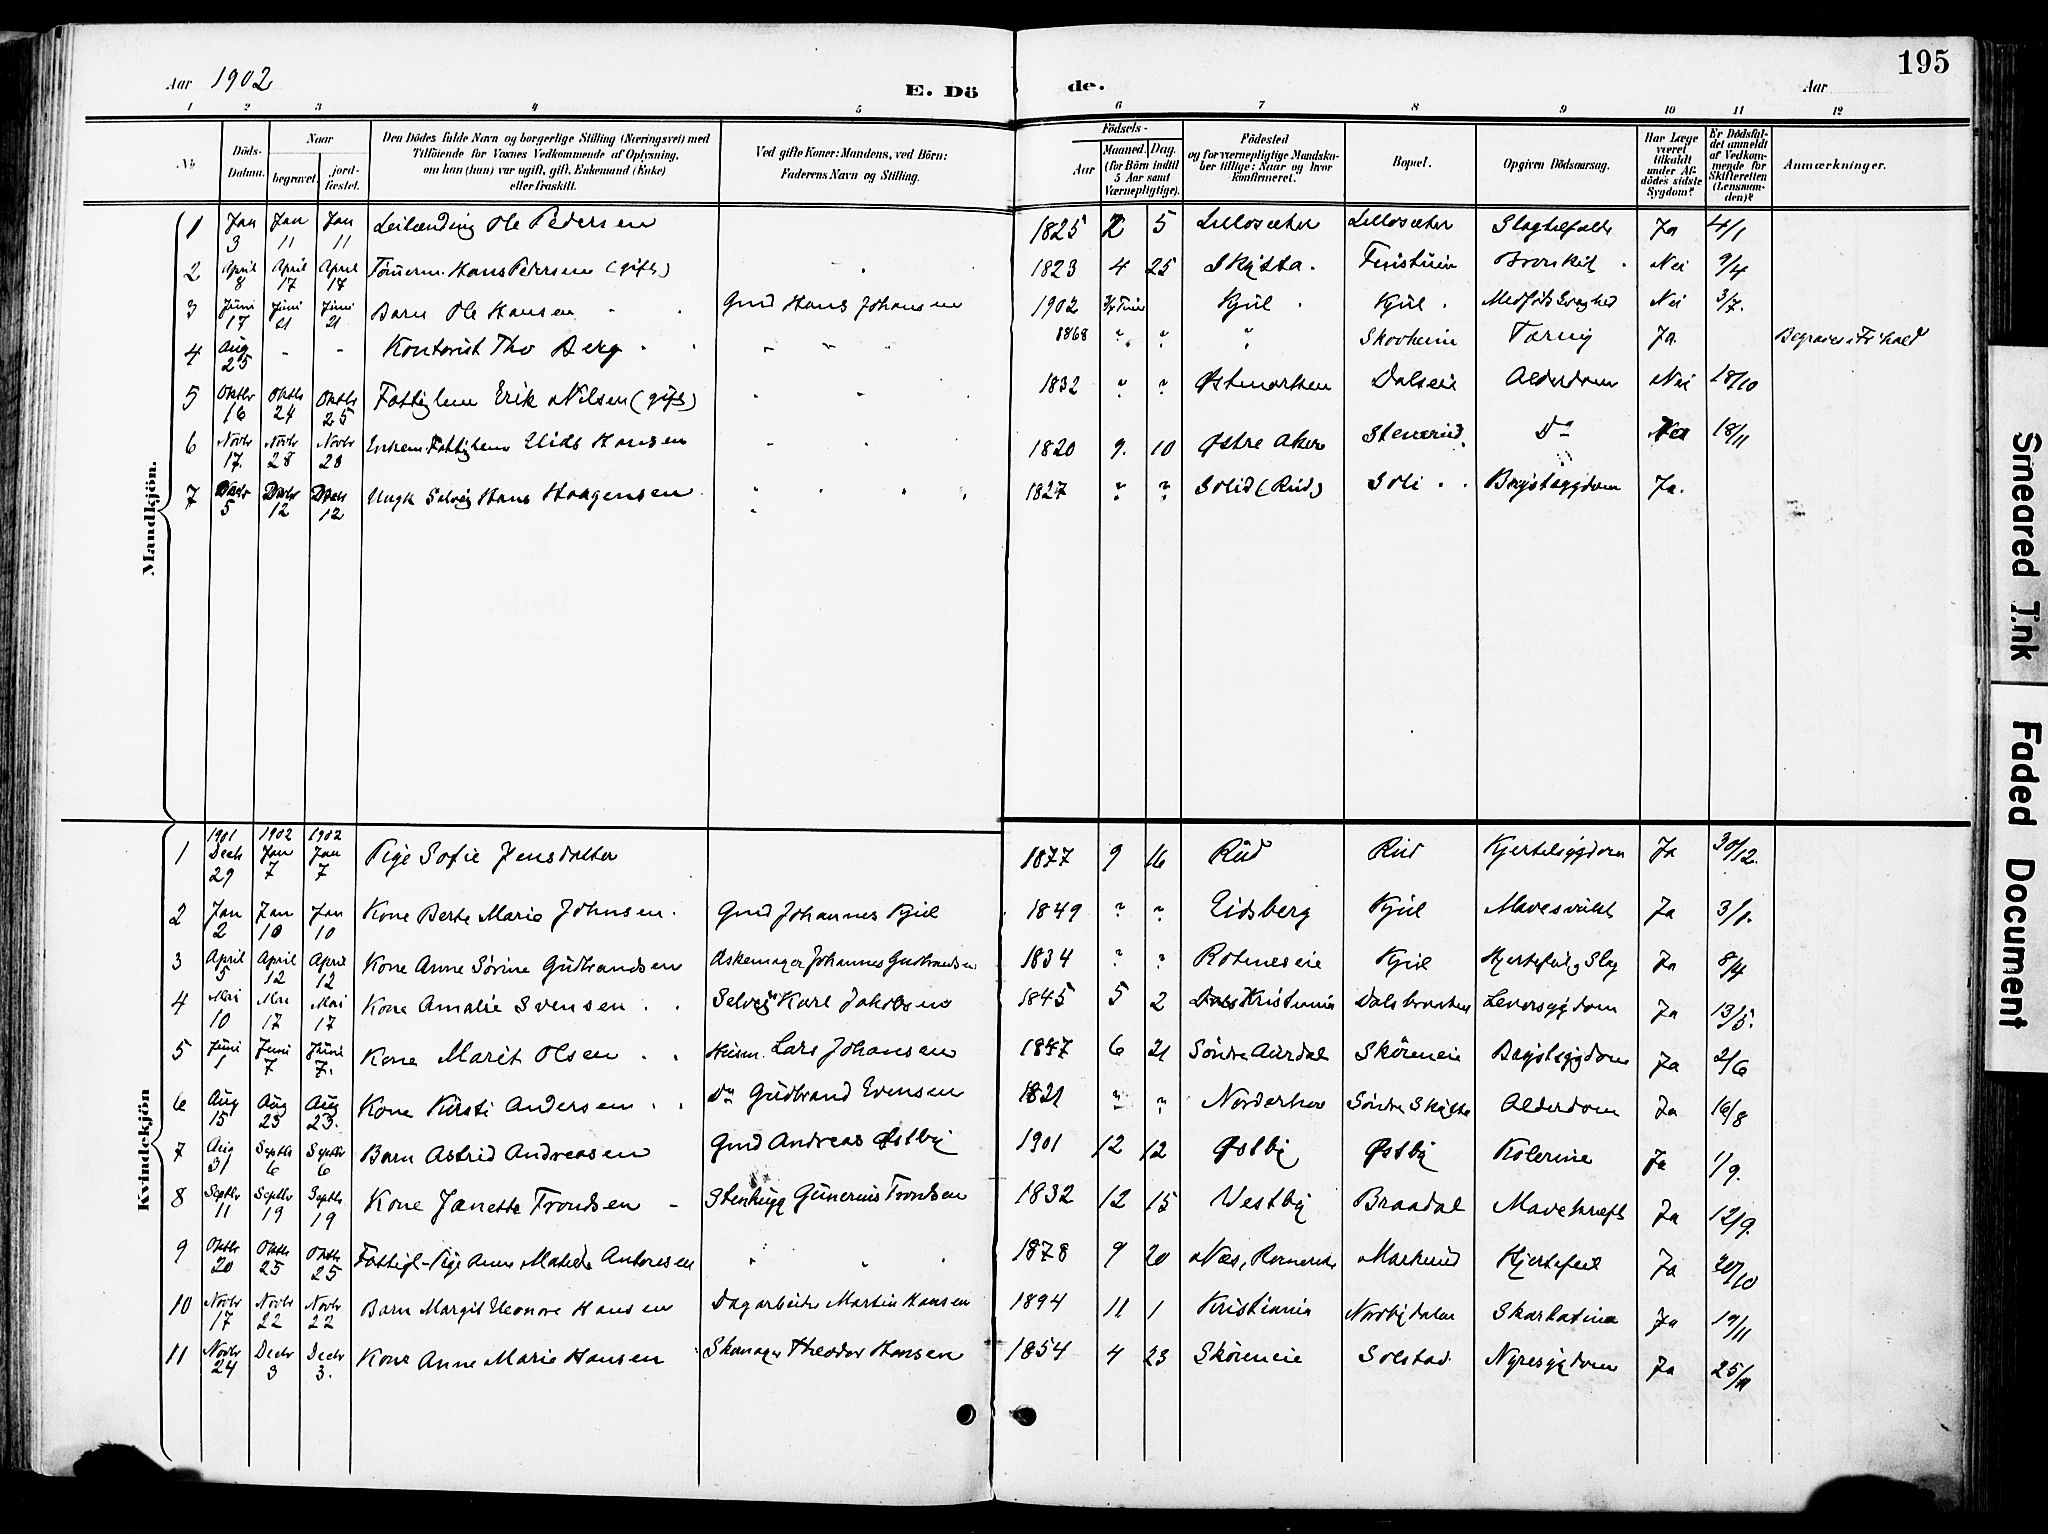 195
Aar 1902 E. Dö de. Aar
1 2 3 4 5 6 7 8 9 10 11 12
No
Döds-Datum.
Naar
begravet.
jord-fæstet.
Den Dödes fulde Navn og borgerlige Stilling (Næringsvei) med
Tilföiende for Voxnes Vedkommende af Oplysning,
om han (hun) var ugift, gift, Enkemand (Enke)
eller fraskilt.
Ved gifte Koner: Mandens, ved Börn:
Faderens Navn og Stilling.
Födsels-
Aar
Maaned. Dag.
(for Börn indtil
5 Aar samt
Værnepligtige).
Födested
og for værnepligtige Mandska-
ber tillige: Naar og hvor
konfirmeret.
Bopæl.
Opgiven Dödsaarsag.
Har Læge
været
tilkaldt
under Af-
dödes sidste
Sygdom?
Er Dödsfal-
det anmeldt
af Vedkom-
mende for
Skifteretten
(Lensman-
den)?
Anmærkninger.
Mandkjön.
1 Jan 3 Jan 11 Jan 11 Leilænding Ole Pedersen 1825 2 5 Lillosæter Lillosæter Slagtilfælde Ja 4/1
2 April 8 April 17 April 17 Tømmerm. Hans Pedersen (gift) 1823 4 25 Skytta Bronkit Nei 9/4
3 Juni 17 Juni 21 Juni 21 Barn Ole Hansen Gmd Hans Johansen 1902 Kjul Kjul Medfødt Svaghed Nei 3/7.
4 Aug 25 - - Kontorist Tho Berg 1868 " " " Skovheim Tæring Ja
5 Oktbr 16 Oktb 24 Oktb 25 Fattiglem Erik Nilsen (gift) 1832 " " Østmarken Dalseie Alderdom Nei 18/10
6 Novbr 17. Novbr 28 Novbr 28 Enkem. Fattiglem Hansen 1820 9. 10 Østre Aker Stenerud Do Nei 18/11
7 Decbr 5 Decbr 12 Decb 12 Ungk Selveg Hans Haagensen 1827 " " Solid (Rud) Soli Brystsygdom Ja.
Kvindekjön
1 1901 Decb 29 1902 Jan 7 1902 Jan 7 Pige Sofie Jensdatter 1877 9 16 Rud Rud Kjertelsygdom Ja 30/12.
2 Jan 2 Jan 10 Jan 10 Kone Berte Marie Johnsen. Gmd Johannes Kjul 1849 " " Eidsberg Kjul Mavesvulst Ja 3/1.
3 April 5 April 12 April 12 Kone Anne Sørine Gudbrandsen Askemager Johannes Gudbrandsen 1834 " " Rotneseie Kjul Hjertefeil, Slag Ja 8/4
4 Mai 10 Mai 17 Mai 17 Kone Amalie Svensen Selveg Karl Jakobsen 1845 5 2 Kristiania Dalsbraaten Leversygdom Ja 13/5.
5 Juni 1 Juni 7 Juni 7. Kone Marit Olsen Husm. Lars Johansen 1847 6 21 Søndre Aurdal Skøreneie Brystsygdom Ja 2/6
6 Aug 15 Aug 23 Aug 23. Kone Kirsti Andersen Do Gudbrand Evensen 1821 " " Norderhov Søndre Skytta Alderdom Ja 16/8
7 Aug 31 Septbr 6 Septbr 6 Barn Astrid Andreasen Gmd Andreas Østby 1901 12 12 Østby Østby Kolerine Ja 1/9.
8 Septbr 11 Septbr 19 Septbr 19 Kone Janette Trondsen - Stenhugg Gunerius Trondsen 1832 12 15 Vestby Braadal Mavekræft Ja 12/9.
9 Oktbr 20 Oktb 25 Oktb 25 Fattigl-Pige Anna Matilde Antonsen 1878 9 20 Næs, Romerike Markerud Hjertefeil Ja 20/10
10 Novbr 17 Novbr 22 Novbr 22 Barn Margit Eleonore Hansen Dagarbeider Martin Hansen 1894 11 1 Kristiania Nordbydalen Skarlatina Ja 19/11
11 Novbr 24 Decbr 3 Decbr 3. Kone Anne Marie Hansen Skomager Theodor Hansen 1854 4 23 Skøreneie Solstad Nyresygdom Ja 25/11
Smeared Ink
Faded Document